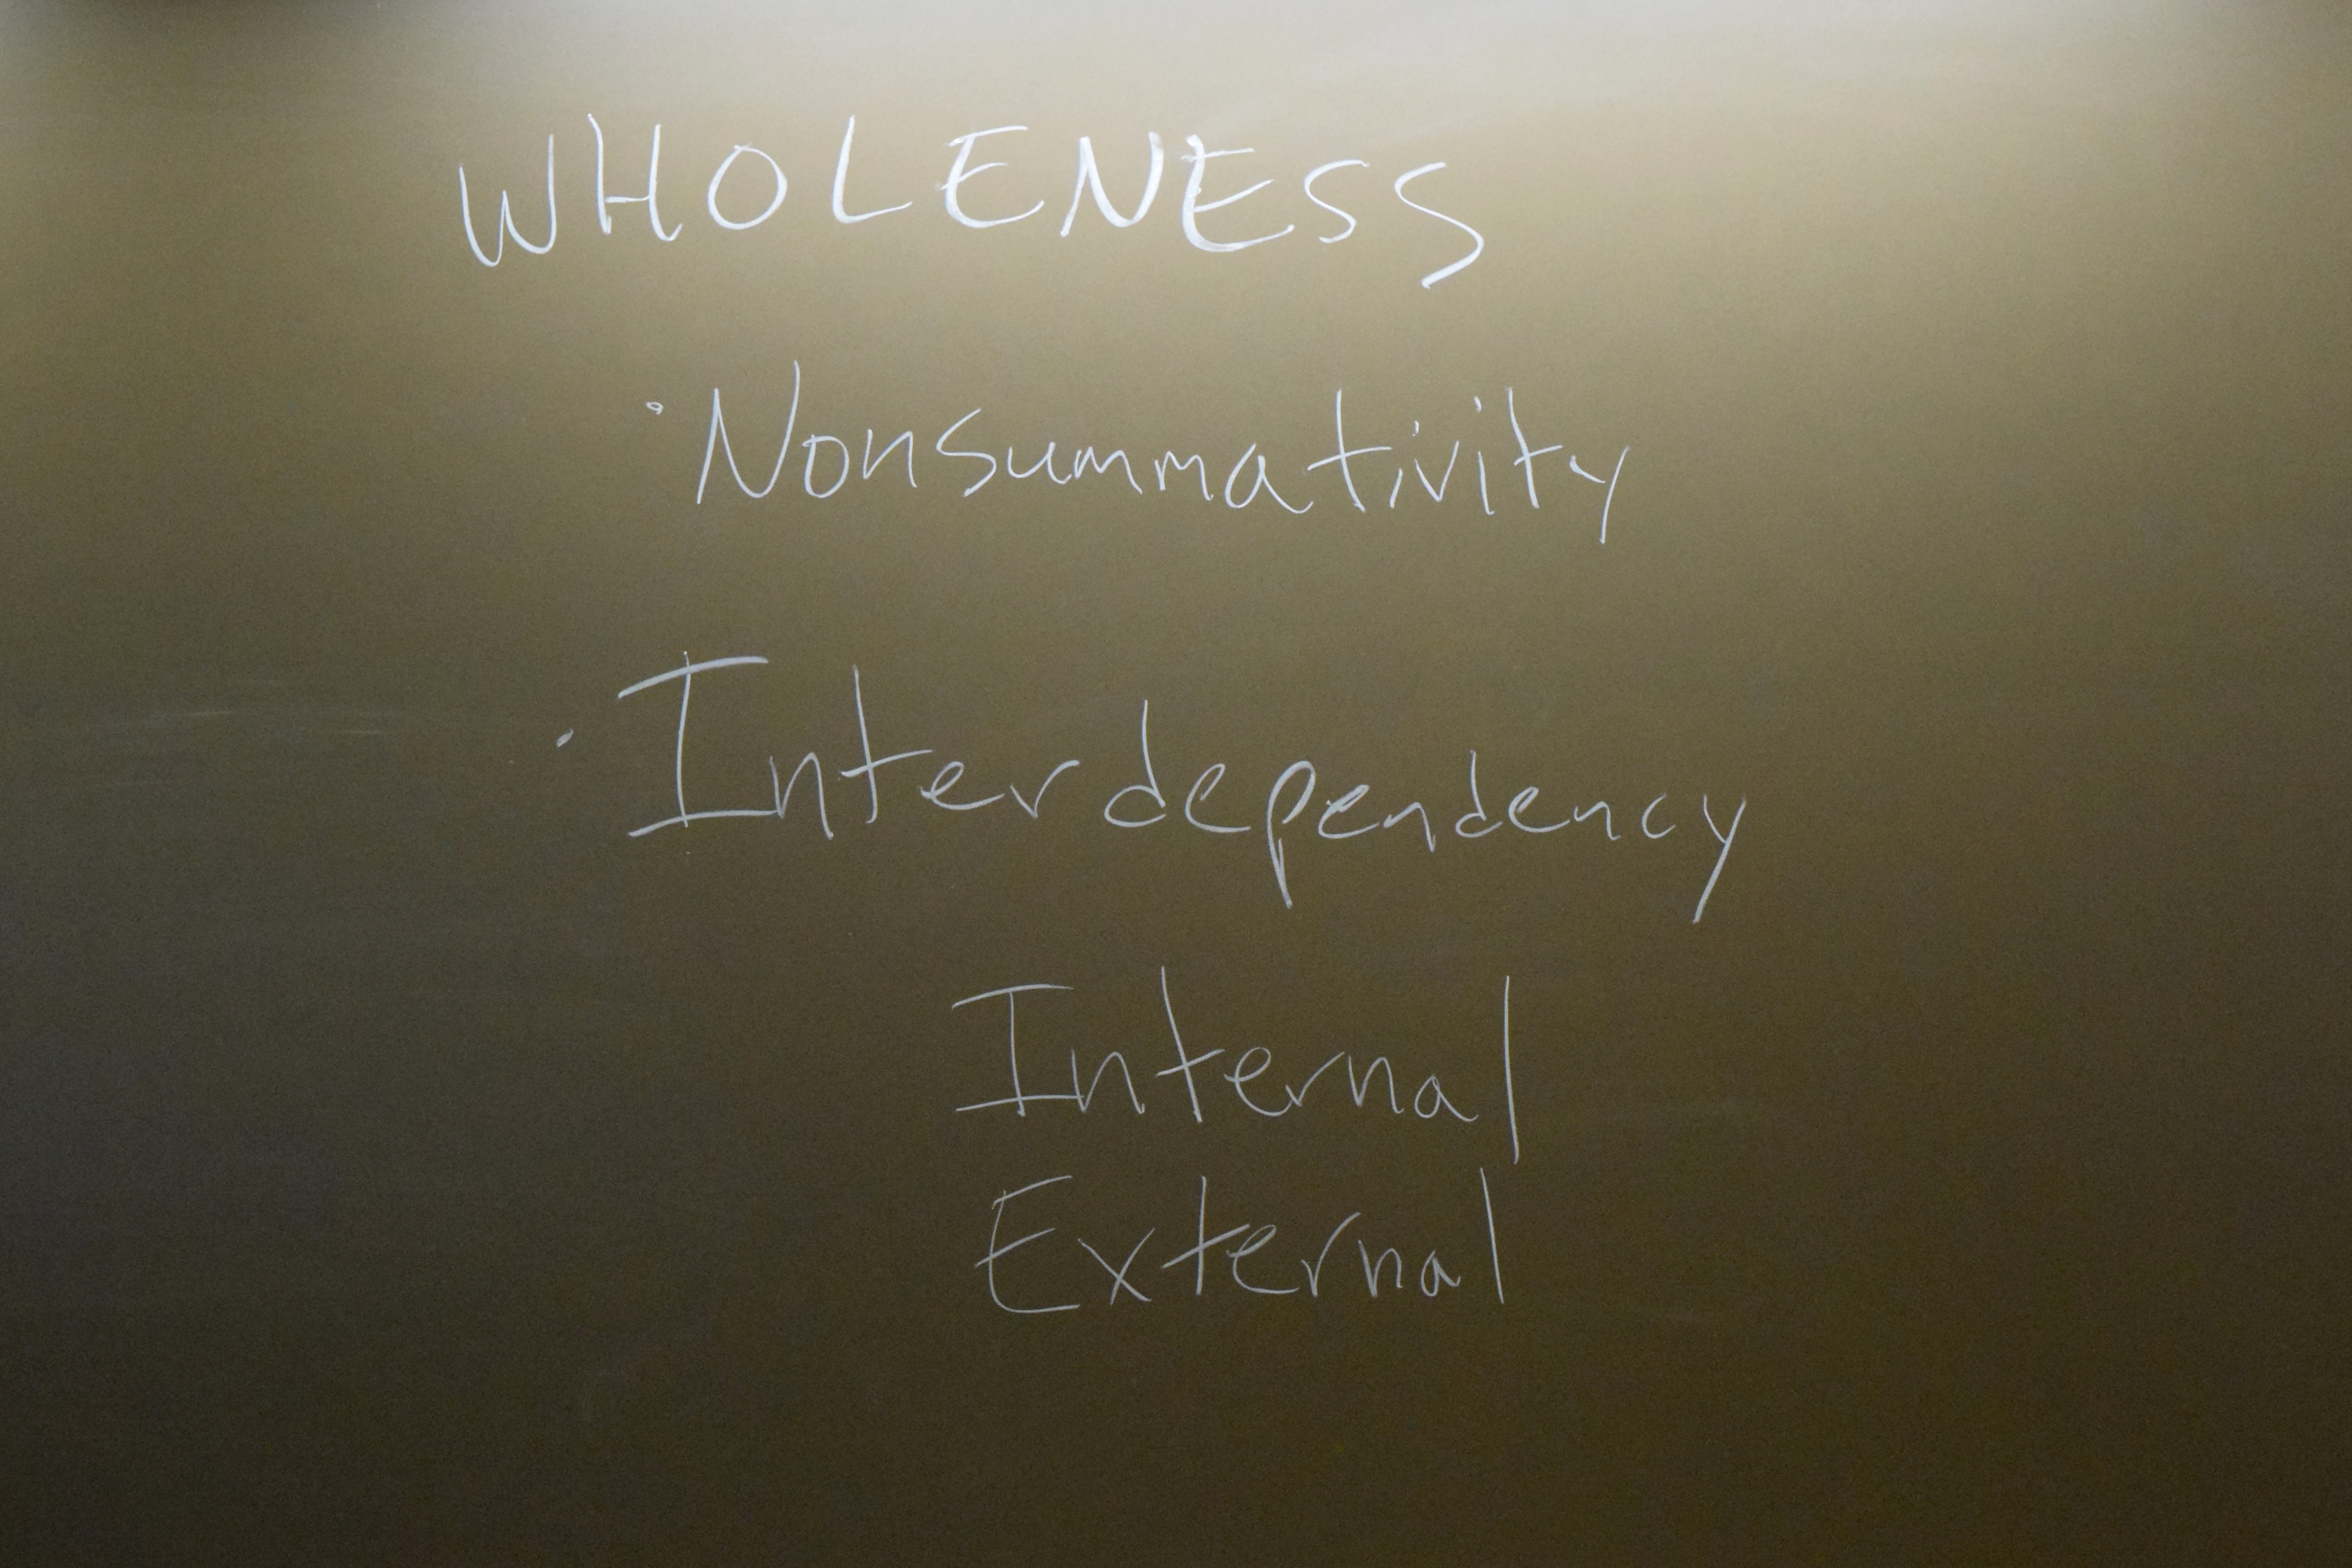 WHOLENESS
· Nonsummativity
· Interdependency
Internal
External